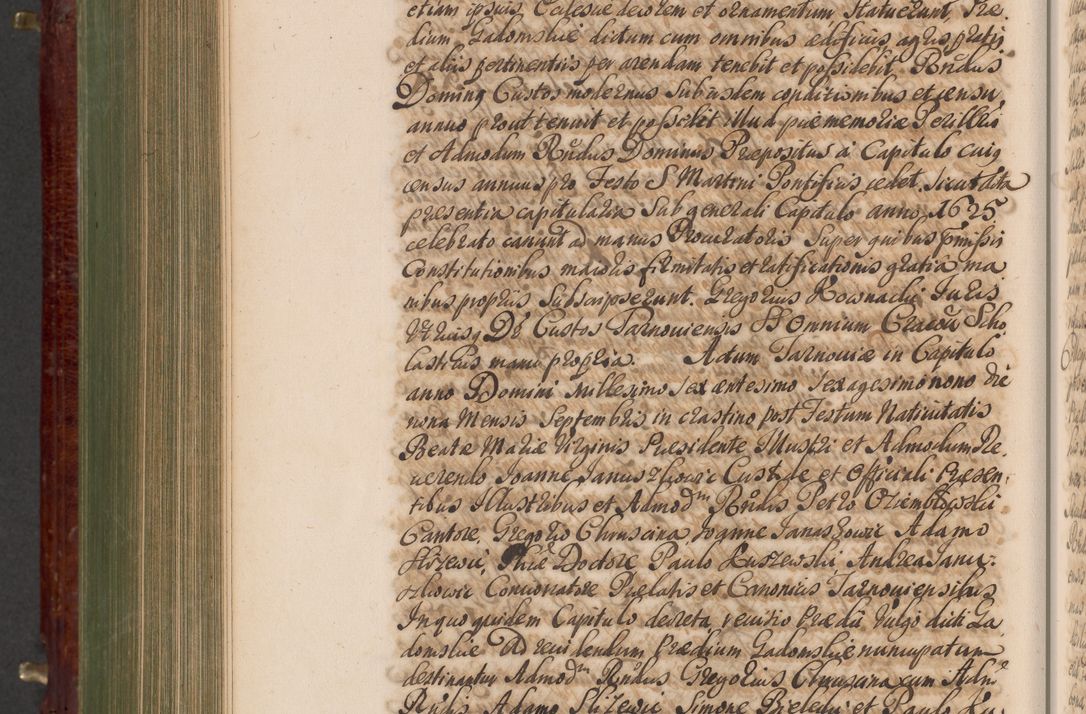 etiam ipsius Ecclesiæ decorem et ornamentum statuerunt, Præ
dium Gadomskie dictum cum omnibus ædificiis agris pratis
et aliis pertinentiis per arendam tenebit et possidebit, Rndus
Dominq Custos modernus sub iisdem conditionibus et censu
annuo prout tenuit et possedit illud piæ memoriæ Perillris
et Admodum Rndus Dominus Præpositus à Capitulo cuiq
census annuus pro Festo S Martini Pontificis cedet. sicut dita
præsentia capitularia sub generali Capitulo anno 1625
celebrato canunt ad manus Procuratoris super quibus præmissis
Constitutionibus maioris firmitatis et ratificationis gratia ma
nibus propriis subscripserunt. Gregorius Kownacki Juris
Vtriusq Dr Custos Tarnouiensis SS Omnium Cracou Scho
lasticus manu propria. Actum Tarnouiæ in Capitulo
anno Domini millesimo sexcentesimo sexagesimo nono die
nona Mensis Septembris in crastino post Festum Natiuitatis
Beatæ Mariæ Virginis Præsidente Illustri et Admodum Re
uerendo Joanne Januszkowic Custode et Officiali Præsen
tibus Illustribus et Admodm Rndis Petro Oziembłowskii
Cantore, Gregorio Chruscina Joanne Janaszkowic Adamo
Strzewic, Phiæ Doctore Paulo Kuszewski, Andrea Janu:
szkowic Concionatore Prælatis et Canonicis Tarnouiensibus
In quo quidem Capitulo decreta reuisio Prædii vulgo dicti Ga
domskie Ad reuidendum Prædium Gadomskie nuncupatum
destinantur Admodm Rndus Gregorius Chruscina cum Admr
Rndis Adamo Strzewic Simone Bieledii et Paulo Ku